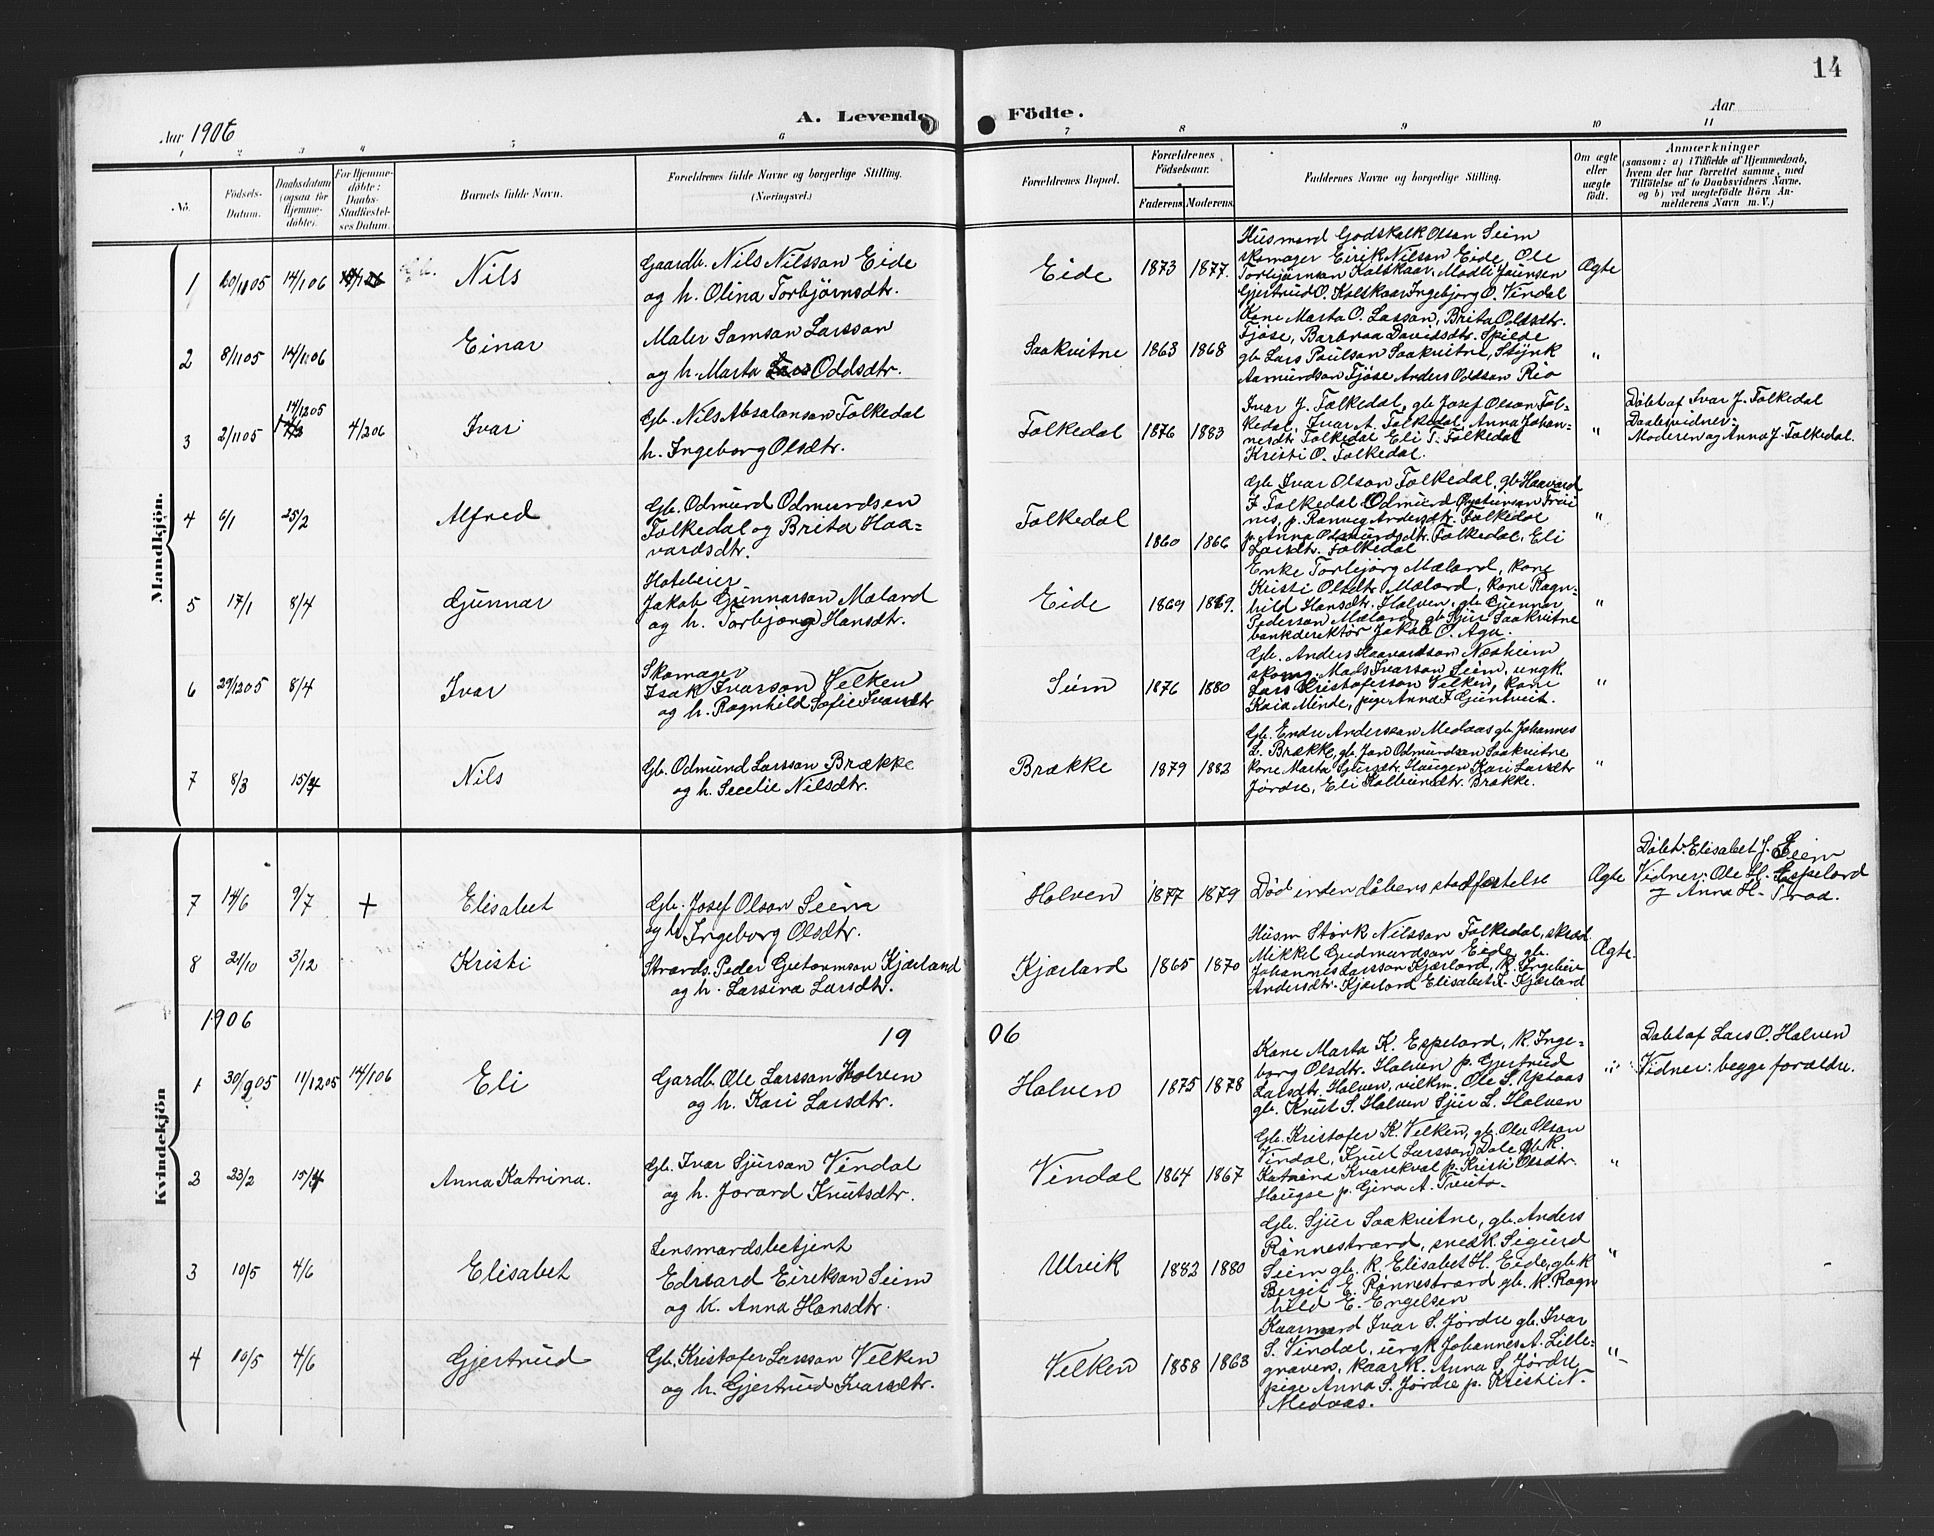 14
Aar 1906
A. Levende Födte.
Aar
1 2 3 4 5 6 7 8 9 10 11
No.
Födsels-
Datum.
Daabsdatum
(ogsaa for
Hjemme-
döbte).
For Hjemme-
döbte:
Daabs-
Stadfæstel-
ses Datum.
Barnets fulde Navn.
Forældrenes fulde Navne og borgerlige Stilling.
(Næringsvei.)
Forældrenes Bopæl.
Forældrenes
Födselsaar.
Faderens. Moderens.
Faddernes Navne og borgerlige Stilling.
Om ægte
eller
uægte
født.
Anmærkninger
(saasom: a) i Tilfælde af Hjemmedaab,
hvem der har forrettet samme, med
Tilføielse af to Daabsvidners Navne,
og b) ved uægtefödte Börn An-
melderens Navn m. V.)
Mandkjön.
1 14/1 06 Nils
Gaardb. Nils Nilsson Eide
og h. Olina Torbjörnsdtr.
Eide 1873 1877.
Husmand Godskalk Olson Seim
skomager Eirik Nilsen Eide, Ole
Torbjørnson Kolskaar, Madli Jaunsen
Gjertrud O. Kolskaar Ingebjorg O. Vindal
Ægte
2 8/11 05 14/1 06 Einar
Maler Samson Larsson
og h. Marta Oddsdtr.
Saakvitne 1863 1868
Kone Marta O. Lasson, Brita Oldsdtr.
Tjöse, Barbraa Davidsdtr. Spilde
gb. Lars Paulson Saakvitne, Styrk
Aamundson Tjöse Anders Oddson Rio
"
3 2/11 05 14/12 05 4/2 06 Ivar
Gb. Nils Absalonson Folkedal
h. Ingeborg Olsdtr.
Folkedal 1876 1883
Ivar J. Folkedal, gb. Josef Olson Fol-
kedal, Ivar A. Folkedal, Anna Johan-
nesdtr. Folkedal Eli T. Folkedal
Kristi O. Folkedal.
"
Döbt af Ivar J. Folkedal
Daabsvidner:
Moderen og Anna J. Folkedal.
4 6/1 25/2 Alfred
Gb. Odmund Odmundsen
Folkedal og Brita Haa-
vardsdtr.
Folkedal 1860 1866
Gb. Ivar Olson Folkedal, gb. Haavard
J. Folkedal Odmund Øysteinson
p. Ranveig Andersdtr. Folkedal
p. Anna Odmundsdtr. Folkedal, Eli
Larsdtr. Folkedal
"
5 17/1 8/4 Gunnar
Hoteleier
Jakob Gunnarson Mæland
og h. Torbjörg Hansdtr.
Eide 1869 1869.
Enke Torbjörg Mæland, kone
Kristi Olsdtr. Mæland, kone Ragn-
hild Hansdtr. Halven, gb. Gunnar
Pederson Mæland, gb. Sjur Saakvitne
bankdirektör Jakob O. Aga.
"
6 29/12 05 8/4 Ivar
Skomager
Isak Ivarson Velken
og h. Ragnhild Sofie Ivarsdtr
Seim 1876 1880
Gb. Anders Haavardson Næsheim
skomg. Mads Ivarson Seim, ungk.
Lars Kristoferson Velken, kone
Kaia Minde, pige Anna J.
"
7 8/3 15/4 Nils
Gb. Odmund Larsson Brække
og h. Secelie Nilsdtr.
Brække 1879 1882
Gb. Endre Andersson Medaas gb. Johannes
L. Brække, gb. Jon Odmundson Saakvitne
kone Marta Sjursdtr. Haugen Kari Larsdtr
Jördre, Eli Kolbeinsdtr. Brække.
"
Kvindekjön
7 14/6 9/7 + Elisabet
Gb. Josef Olson Seim
og h. Ingeborg Olsdtr.
Halven 1877 1879
Död inden daabens stadfæstelse
Ægte
Döbt: Elisabet J. Seim
Vidner: Ole H. Espeland
J Anna H.
8 21/10 3/12 Kristi
Strands. Peder Guttormson Kjærland
og h. Larsina Larsdtr.
Kjærland 1865 1870
Husm Störk Nilsson Folkedal, skræd.
Mikkel Gudmundson Eide, gb.
Johannes Larsson Kjærland, k. Ingebör
Andersdtr. Kjærland Elisabet K. Kjærland
Ægte.
1906 1906
1 30/9 05 11/12 05 14/1 06 Eli
Gardb. Ole Larsson Halven
og h. Kari Larsdtr.
Halven 1875 1878
Kone Marta K. Espeland, k. Inge-
borg Olsdtr. Halven p. Gjertrud
Larsdtr. Halven, Ole S. Opsaas
gb. Knut S. Halven Sjur L. Halven
"
Döbt af Lars O. Halven
Vidner: begge forældre.
2 23/2 15/4 Anna Katrina.
Gb. Ivar Sjurson Vindal
og h. Jorand Knutsdtr.
Vindal 1864 1867
Gb. Kristofer K. Velken, gb. Ole Olson
Vindal, Knut Larsson Dale gb. k.
Katrina Kvarekval p. Kristi Olsdtr.
Haugse p. Gjena A. Treito.
"
3 10/5 4/6 Elisabet
Lensmandsbetjent
Edvard Eirikson Seim
og k. Anna Hansdtr.
Ulvik 1882 1880
Gb. Sjur Saakvitne, gb. Anders
Rönnestrand, snedk. Sigurd
Seim gb. k. Elisabet H. Eide, gb. k
Bergit E. Rönnestrand gb. k. Ragn
hild E. Engelsen
"
4 10/5 4/6 Gjertrud
Gb. Kristofer Larsson Velken
og h. Gjertrud Ivarsdtr.
Velken 1858 1863
Kaarmand Ivar S. Jördre gb. Ivar
S. Vindal, ungk Johannes A. Lille-
graven, kaark. Anna S. Jördre,
pige Anna S. Jördre p. Kristi N.
Medaas.
"